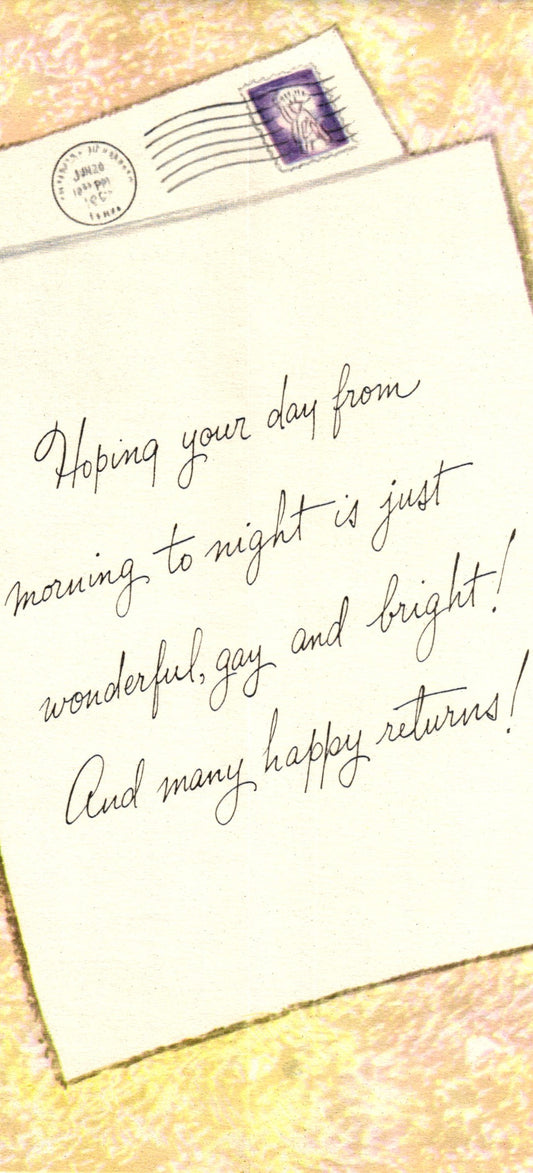 JAN 20
PM
Hoping your day from
morning to night is just
wonderful, gay and bright!
And many happy returns!